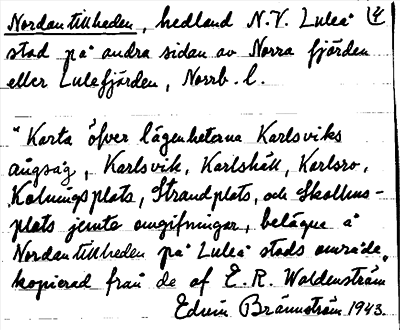 Nordantillheden, hedland N.V. Luleå (4
stad på andra sidan av Norra fjärden
eller Lulefjärden, Norrb. l.
"Karta öfver lägenheterna Karlsviks
ångsåg, Karlsvik, Karlshäll, Karlsro,
Kolningsplats, Strandplats, och Skollus-
plats jemte omgifningar, belägne å
Nordantillheden på Luleå stads område,
kopierad från de af E. R. Waldenström
Edvin Brännström 1943.